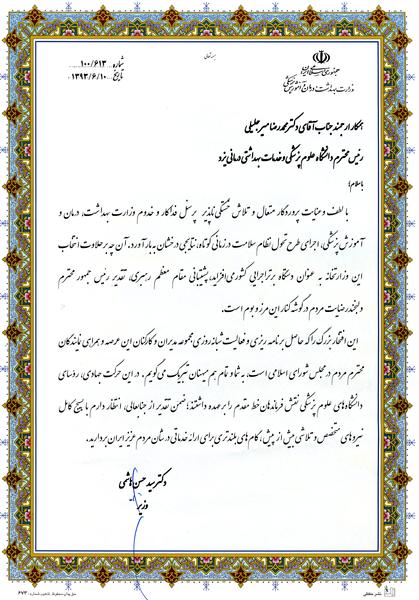 بسمه تعالی
جمهوری اسلامی ایران
وزارت بهداشت، درمان و آموزش پزشکی
شماره ۱۰۰/۶۱۳
تاریخ ۱۳۹۳/۶/۱۰
همکار ارجمند جناب آقای دکتر محمدرضا میرجلیلی
رئیس محترم دانشگاه علوم پزشکی و خدمات بهداشتی درمانی یزد
با سلام؛
با لطف و عنایت پروردگار متعال و تلاش خستگی ناپذیر پرسنل فداکار و خدوم وزارت بهداشت، درمان و
آموزش پزشکی، اجرای طرح تحول نظام سلامت در زمانی کوتاه، نتایجی درخشان به بار آورد. آن چه بر حلاوت انتخاب
این وزارتخانه به عنوان دستگاه برتر اجرایی کشور می‌افزاید، پشتیبانی مقام معظم رهبری، تقدیر رئیس جمهور محترم
و لبخند رضایت مردم در گوشه کنار این مرز و بوم است.
این افتخار بزرگ را که حاصل برنامه ریزی و فعالیت شبانه روزی مجموعه مدیران و کارکنان این عرصه و همراهی نمایندگان
محترم مردم در مجلس شورای اسلامی است، به شما و تمام هم میهنان تبریک می‌گویم. در این حرکت جهادی، رؤسای
دانشگاه‌های علوم پزشکی نقش فرماندهان خط مقدم را بر عهده داشتند؛ ضمن تقدیر از جنابعالی، انتظار دارم با بسیج کامل
نیروهای متخصص و تلاشی بیش از پیش، گام‌های بلندتری برای ارائه خدماتی در شأن مردم عزیز ایران بردارید.
دکتر سید حسن هاشمی
وزیر
نشر حافظی
حق چاپ محفوظ. تذهیب شماره: ۶۷۳